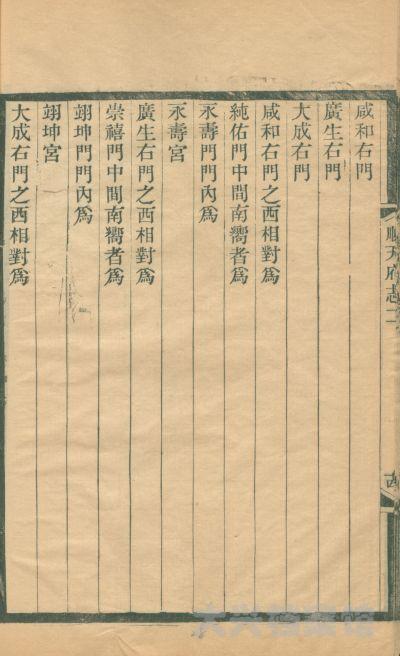 咸和右門
廣生右門
大成右門
咸和右門之西相對爲
純佑門中間南嚮者爲
永壽門門內爲
永壽宮
廣生右門之西相對爲
崇禧門中間南嚮者爲
翊坤門門內爲
翊坤宮
大成右門之西相對爲
順天府志二